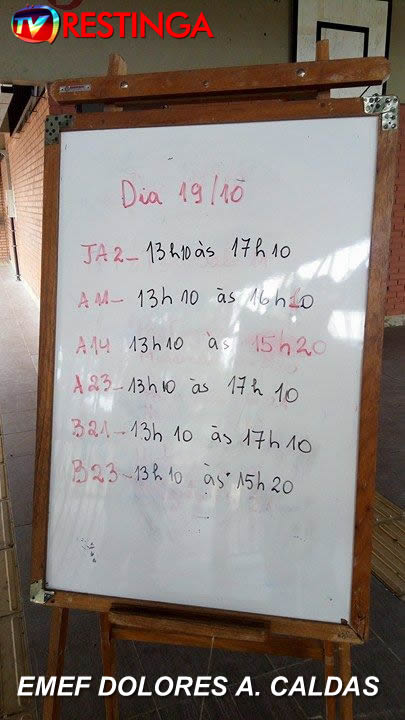 TV RESTINGA
Dia 19/10
JA2- 13h10 às 17h10
A11- 13h 10 às 16h10
A14 13h10 às 15h20
A23-13h10 às 17h 10
B21-13h 10 às 17h10
B23-13h10 às 15h20
EMEF DOLORES A. CALDAS